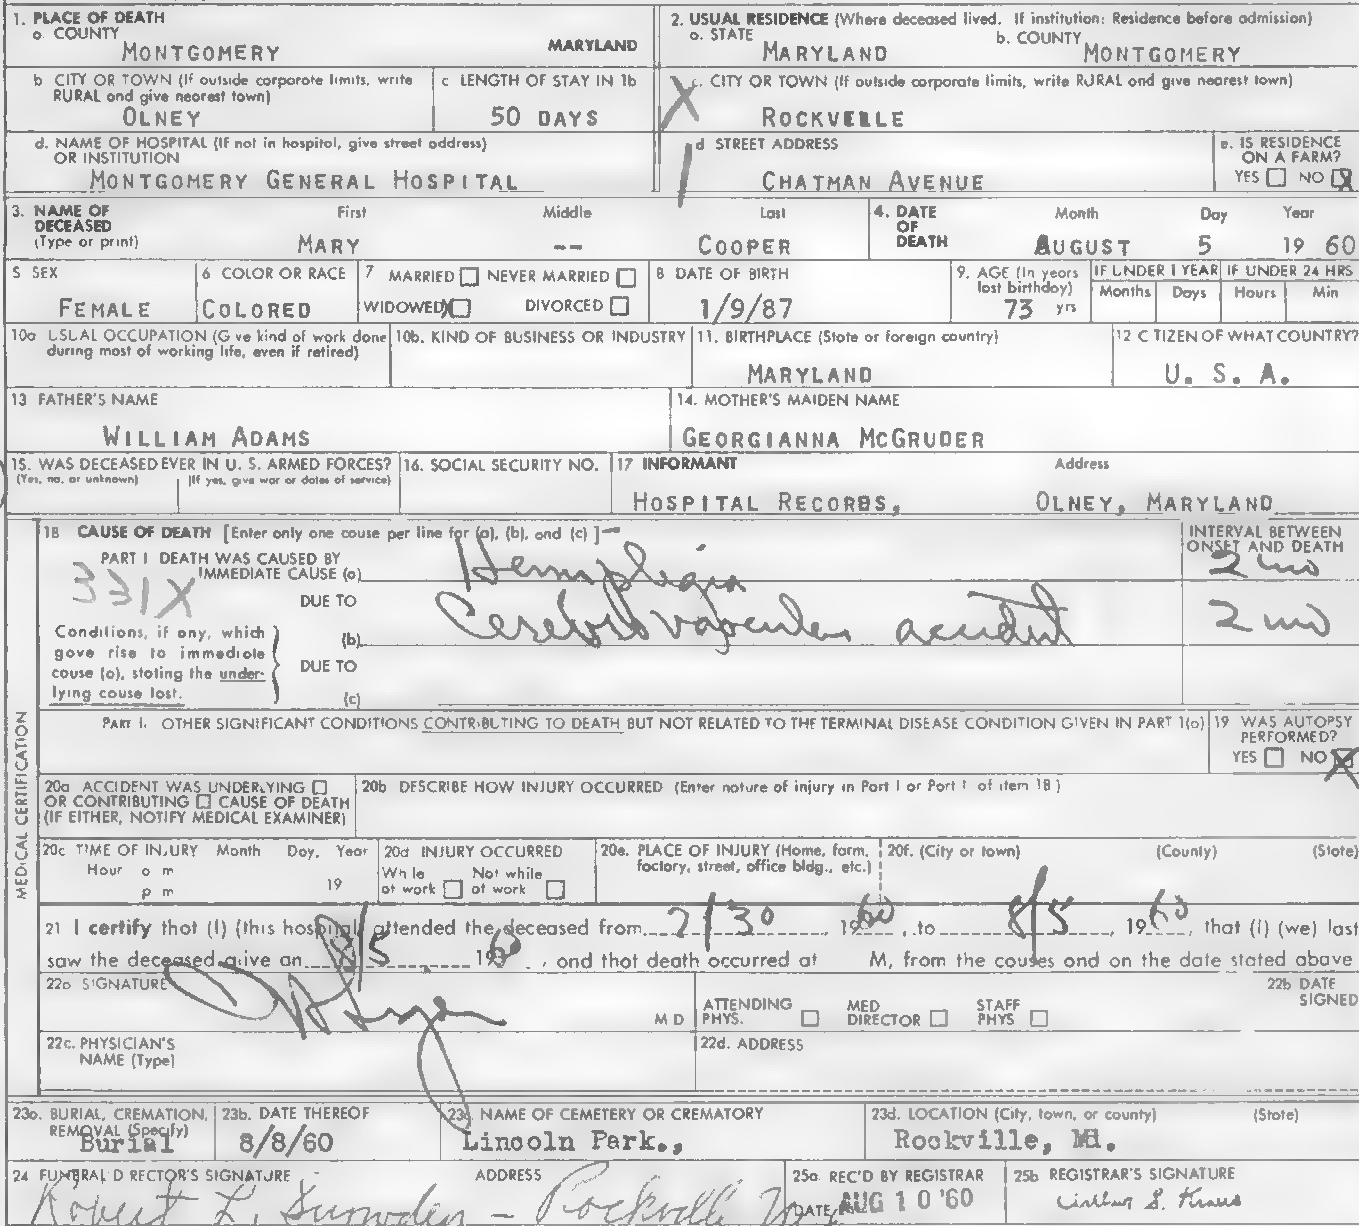 1. PLACE OF DEATH
a. COUNTY
MONTGOMERY MARYLAND
2. USUAL RESIDENCE (Where deceased lived. If institution: Residence before admission)
a. STATE b. COUNTY
MARYLAND MONTGOMERY
b CITY OR TOWN (If outside corporate limits, write
RURAL and give nearest town)
OLNEY
c LENGTH OF STAY IN 1b
50 DAYS
c. CITY OR TOWN (If outside corporate limits, write RURAL and give nearest town)
ROCKVELLE
d. NAME OF HOSPITAL (If not in hospital, give street address)
OR INSTITUTION
MONTGOMERY GENERAL HOSPITAL
d STREET ADDRESS
CHATMAN AVENUE
e. IS RESIDENCE
ON A FARM?
YES NO X
3. NAME OF
DECEASED
(Type or print)
First Middle Last
MARY -- COOPER
4. DATE
OF
DEATH
Month Day Year
AUGUST 5 19 60
5 SEX
FEMALE
6 COLOR OR RACE
COLORED
7 MARRIED NEVER MARRIED
WIDOWED X DIVORCED
8 DATE OF BIRTH
1/9/87
9. AGE (In years
last birthday)
73 yrs
IF UNDER 1 YEAR
Months Days
IF UNDER 24 HRS
Hours Min
10a USUAL OCCUPATION (Give kind of work done
during most of working life, even if retired)
10b. KIND OF BUSINESS OR INDUSTRY
11. BIRTHPLACE (State or foreign country)
MARYLAND
12 CITIZEN OF WHAT COUNTRY?
U. S. A.
13 FATHER'S NAME
WILLIAM ADAMS
14. MOTHER'S MAIDEN NAME
GEORGIANNA MCGRUDER
15. WAS DECEASED EVER IN U. S. ARMED FORCES?
(Yes, no, or unknown) (If yes, give war or dates of service)
16. SOCIAL SECURITY NO.
17 INFORMANT Address
HOSPITAL RECORDS, OLNEY, MARYLAND
18 CAUSE OF DEATH [Enter only one cause per line for (a), (b), and (c)]
INTERVAL BETWEEN
ONSET AND DEATH
PART I DEATH WAS CAUSED BY
IMMEDIATE CAUSE (a) Hemiplegia 2 mo
331X
DUE TO
(b) Cerebral vascular accident 2 mo
Conditions, if any, which
gave rise to immediate
cause (a), stating the under-
lying cause last.
DUE TO
(c)
MEDICAL CERTIFICATION
PART I. OTHER SIGNIFICANT CONDITIONS CONTRIBUTING TO DEATH BUT NOT RELATED TO THE TERMINAL DISEASE CONDITION GIVEN IN PART 1(a)
19 WAS AUTOPSY
PERFORMED?
YES NO X
20a ACCIDENT WAS UNDERLYING
OR CONTRIBUTING CAUSE OF DEATH
(IF EITHER, NOTIFY MEDICAL EXAMINER)
20b DESCRIBE HOW INJURY OCCURRED (Enter nature of injury in Part I or Part I of item 18)
20c TIME OF INJURY Month Day, Year
Hour a m
p m 19
20d INJURY OCCURRED
While at work Not while at work
20e. PLACE OF INJURY (Home, farm,
factory, street, office bldg., etc.)
20f. (City or town) (County) (State)
21 I certify that (I) (this hospital) attended the deceased from 2/30 1960, to 8/5, 1960, that (I) (we) last
saw the deceased alive on 8/5 1960, and that death occurred at M, from the causes and on the date stated above
22a SIGNATURE
M D
ATTENDING
PHYS.
MED
DIRECTOR
STAFF
PHYS
22b DATE
SIGNED
22c. PHYSICIAN'S
NAME (Type)
22d. ADDRESS
23a. BURIAL, CREMATION,
REMOVAL (Specify)
Burial
23b. DATE THEREOF
8/8/60
23c. NAME OF CEMETERY OR CREMATORY
Lincoln Park.,
23d. LOCATION (City, town, or county) (State)
Rockville, Md.
24 FUNERAL DIRECTOR'S SIGNATURE ADDRESS
Robert L. Snowden - Rockville Md
25a REC'D BY REGISTRAR
DATE AUG 10 '60
25b REGISTRAR'S SIGNATURE